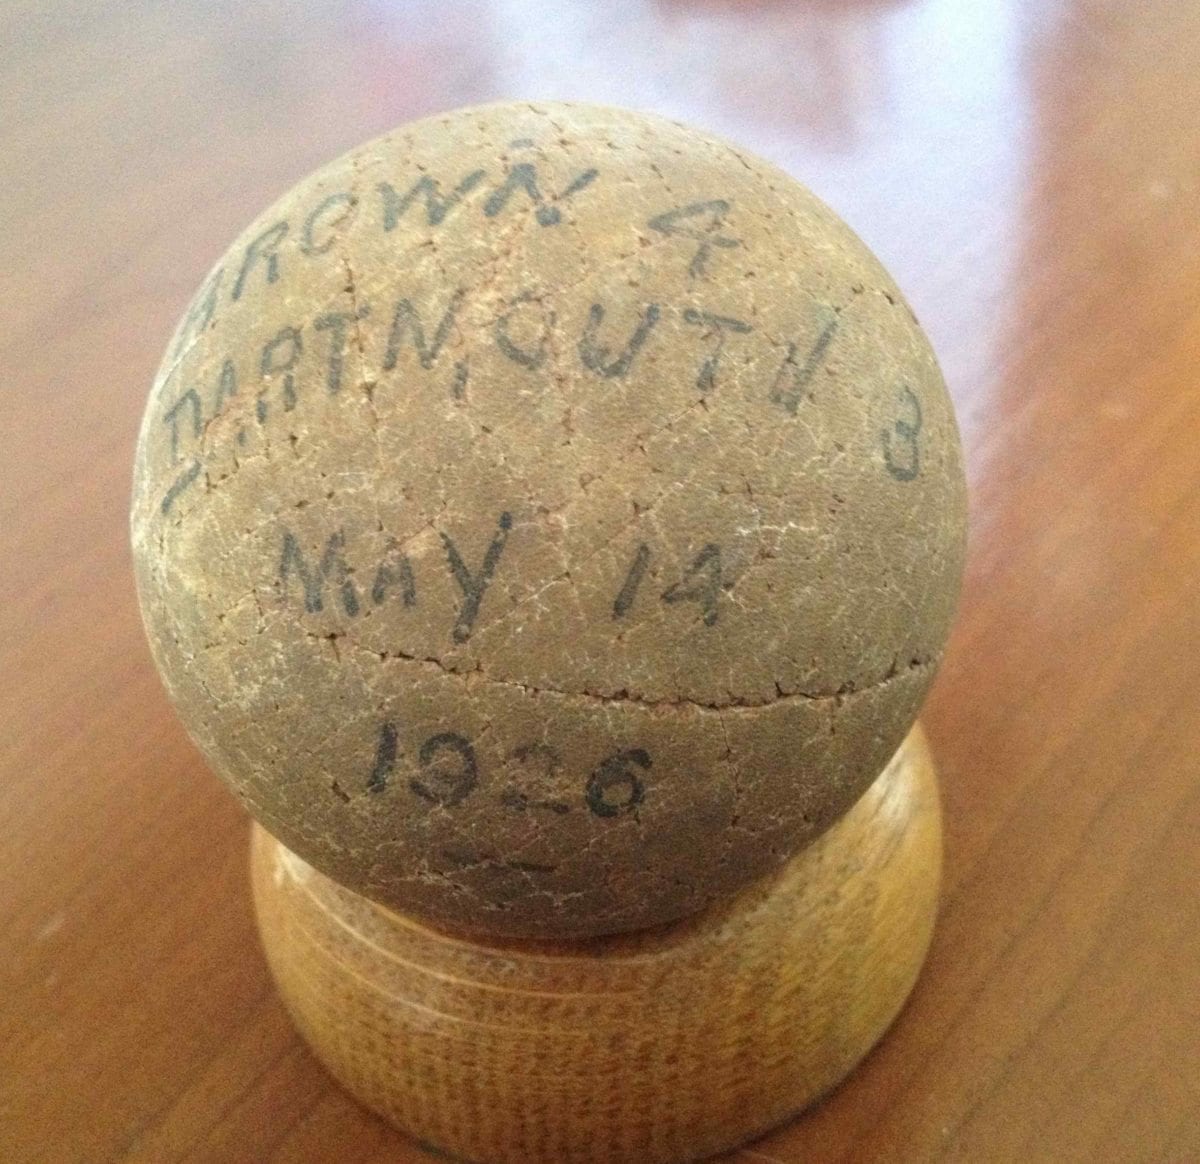 BROWN 4
DARTMOUTH 3
MAY 14
1926